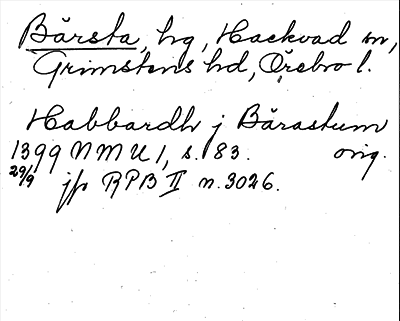 Bårsta, hg, Hackvad sn,
Grimstens hd, Örebro l.
Habbardh j Bårastum
1399 NMU 1, s. 83. orig.
29/9 jfr RPB II n. 3026.